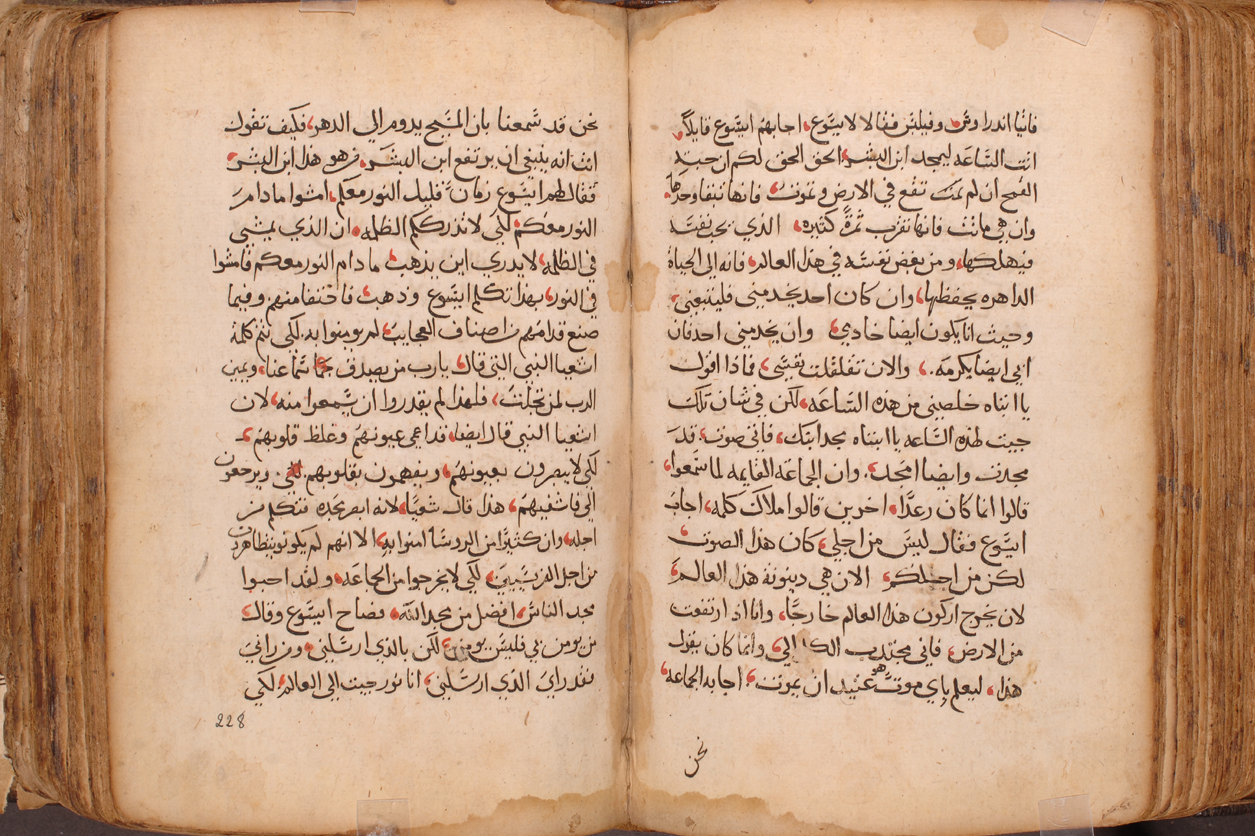 فاتيا اندراوش وفيلبس فقالا لايسوع اجابهم ايسوع قايلاً
اتت الساعه ليمجد ابن البشر الحق الحق لكم ان حبة
القمح ان لم تمت تقع في الارض وتموت فانها تبقا وحدها
وان هي ماتت فانها تقرب ثمرةً كثيره الذي يحب نفسه
فيهلكها ومن بغض نفسه في هذا العالم فانه الى الحياة
الداهره يحفظها وان كان احد يخدمني فليتبعني
وحيث انا يكون ايضا خادمي وان يخدمني احد فان
ابي ايضا يكرمه والان تقلقلت نفسي فماذا اقول
يا ابتاه خلصني من هذه الساعه لكن في شان تلك
جيت لهذه الساعه يا ابتاه مجد ابنك فاتى صوت قد
مجدت وايضا امجد وان الجماعه القايمه لما سمعوا
قالوا انما كان رعدًا اخرين قالوا ملاك كلمه اجاب
ايسوع فقال ليس من اجلي كان هذا الصوت
لكن من اجلكم الان هي دينونة هذا العالم
لان يخرج اركون هذا العالم خارجًا وانا اذا ارتفعت
من الارض فاني مجتذب الكل الي وانما كان يقول
هذا ليعلم باي موت هو عتيد ان يموت اجابه الجماعه
نحن
نحن قد سمعنا بان المسيح يدوم الي الدهر فكيف تقول
انت انه ينبغي ان يرتفع ابن البشر من هو هذا ابن البشر
فقال لهم ايسوع زمان قليل النور معكم امشوا مادام
النور معكم لكي لا تدرككم الظلمه ان الذي يمشي
في الظلمه لا يدري اين يذهب مادام النور معكم فامشوا
في النور بهذا تكلم ايسوع وذهب فاختفا منهم وفيما
صنع قدامهم من اصناف العجايب لم يومنوا به لكي تتم كلمة
اشعيا النبي التي قال يارب من يصدق سماعنا ويمين
الرب لمن تجلت فلهذا لم يقدروا ان يسمعوا منه لان
اشعيا النبي قال ايضا قد اعمى عيونهم وغلظ قلوبهم
لكي لا يبصرون بعيونهم ويفهمون بقلوبهم ويرجعون
الي فاشفيهم هذا قال شعيا لانه ابصر مجده فتكلم من
اجله وان كثيرًا من الروسا امنوا به الا انهم لم يكونو يتظاهرون
من اجل الفريسيين لكي لا يخرجوا من الجماعه ولقد احبوا
مجد الناس افضل من مجد الله فصاح ايسوع وقال
من يومن بي فليس يومن بي لكن بالذي ارسلني ومن راني
فقد راي الذي ارسلني انا نور جيت الي العالم لكي
228